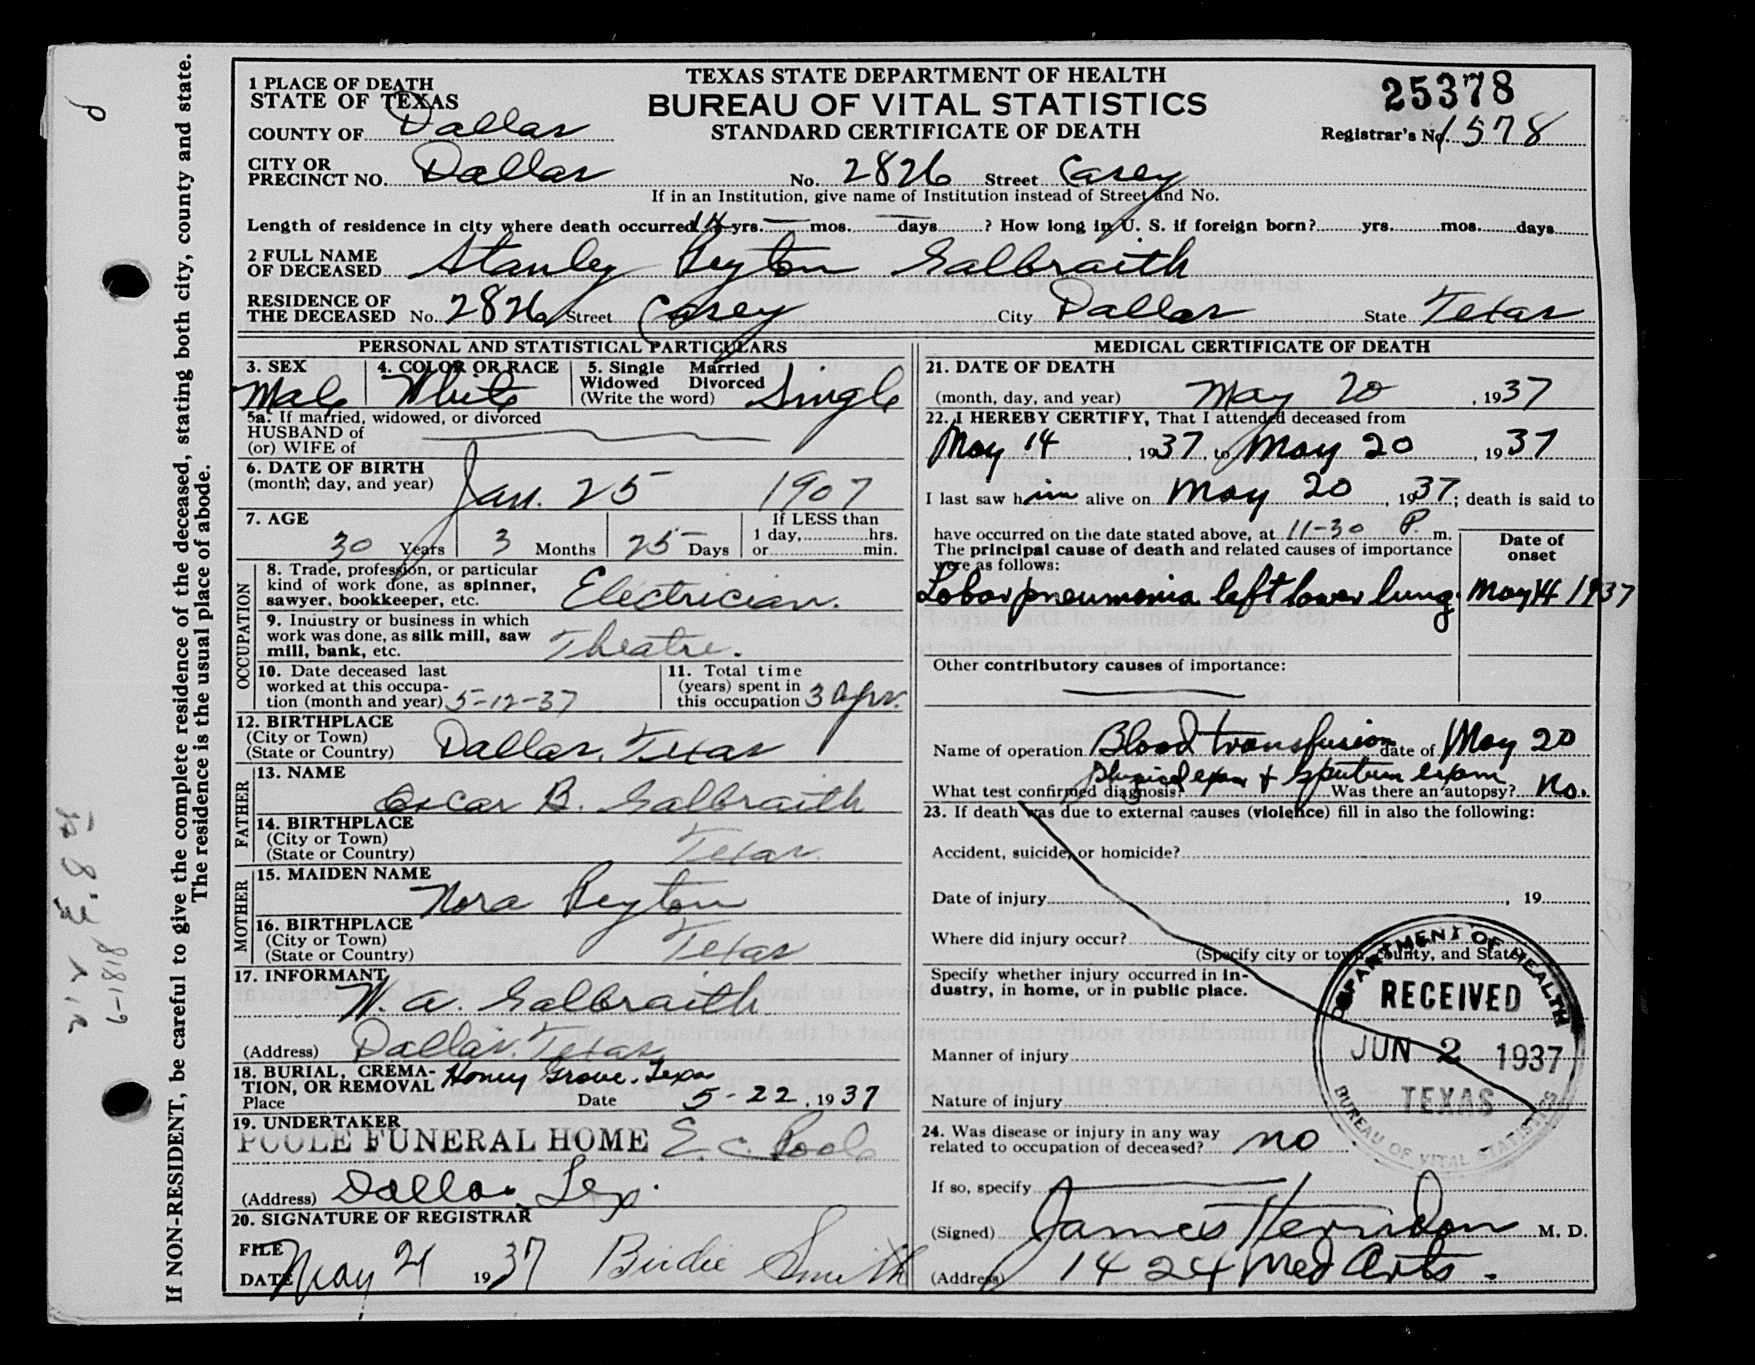 If NON-RESIDENT, be careful to give the complete residence of the deceased, stating both city, county and state.
The residence is the usual place of abode.
TEXAS STATE DEPARTMENT OF HEALTH
BUREAU OF VITAL STATISTICS
STANDARD CERTIFICATE OF DEATH
25378
Registrar's No. 1578
1 PLACE OF DEATH
STATE OF TEXAS
COUNTY OF Dallas
CITY OR
PRECINCT NO. Dallas No. 2826 Street Casey
If in an Institution, give name of Institution instead of Street and No.
Length of residence in city where death occurred yrs. mos. days ? How long in U. S. if foreign born? yrs. mos. days
2 FULL NAME
OF DECEASED Stanley Peyton Galbraith
RESIDENCE OF
THE DECEASED No. 2826 Street Casey City Dallas State Texas
PERSONAL AND STATISTICAL PARTICULARS
3. SEX Male
4. COLOR OR RACE White
5. Single Married
Widowed Divorced
(Write the word) Single
5a. If married, widowed, or divorced
HUSBAND of
(or) WIFE of
6. DATE OF BIRTH
(month, day, and year) Jan. 25 1907
7. AGE 30 Years 3 Months 25 Days
If LESS than
1 day, hrs.
or min.
OCCUPATION
8. Trade, profession, or particular
kind of work done, as spinner,
sawyer, bookkeeper, etc. Electrician.
9. Industry or business in which
work was done, as silk mill, saw
mill, bank, etc. Theatre.
10. Date deceased last
worked at this occupa-
tion (month and year) 5-12-37
11. Total time
(years) spent in
this occupation 3 yrs.
12. BIRTHPLACE
(City or Town)
(State or Country) Dallas, Texas
FATHER
13. NAME
Oscar B. Galbraith
14. BIRTHPLACE
(City or Town)
(State or Country) Texas
MOTHER
15. MAIDEN NAME
Nora Peyton
16. BIRTHPLACE
(City or Town)
(State or Country) Texas
17. INFORMANT
W. A. Galbraith
(Address) Dallas, Texas
18. BURIAL, CREMA-
TION, OR REMOVAL Honey Grove, Texas
Place Date 5-22, 1937
19. UNDERTAKER
POOLE FUNERAL HOME E. C. Poole
(Address) Dallas, Tex.
20. SIGNATURE OF REGISTRAR
FILE
DATE May 21 1937 Birdie Smith
MEDICAL CERTIFICATE OF DEATH
21. DATE OF DEATH
(month, day, and year) May 20, 1937
22. I HEREBY CERTIFY, That I attended deceased from
May 14, 1937, to May 20, 1937
I last saw him alive on May 20, 1937; death is said to
have occurred on the date stated above, at 11-30 P. m.
The principal cause of death and related causes of importance
were as follows:
Date of
onset
Lobar pneumonia left lower lung. May 14 1937
Other contributory causes of importance:
Name of operation Blood transfusion date of May 20
Physical exam & Sputum exam
What test confirmed diagnosis? Was there an autopsy? No.
23. If death was due to external causes (violence) fill in also the following:
Accident, suicide, or homicide?
Date of injury , 19
Where did injury occur?
(Specify city or town, county, and State)
Specify whether injury occurred in in-
dustry, in home, or in public place.
Manner of injury
Nature of injury
DEPARTMENT OF HEALTH
RECEIVED
JUN 2 1937
TEXAS
BUREAU OF VITAL STATISTICS
24. Was disease or injury in any way
related to occupation of deceased? no
If so, specify
(Signed) James Herndon M. D.
(Address) 1424 Med Arts.